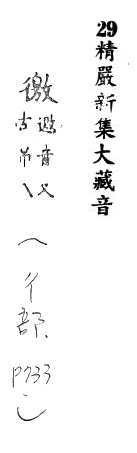 29精嚴新集大藏音
徼
邀音又
古吊乀
(彳部.P733)